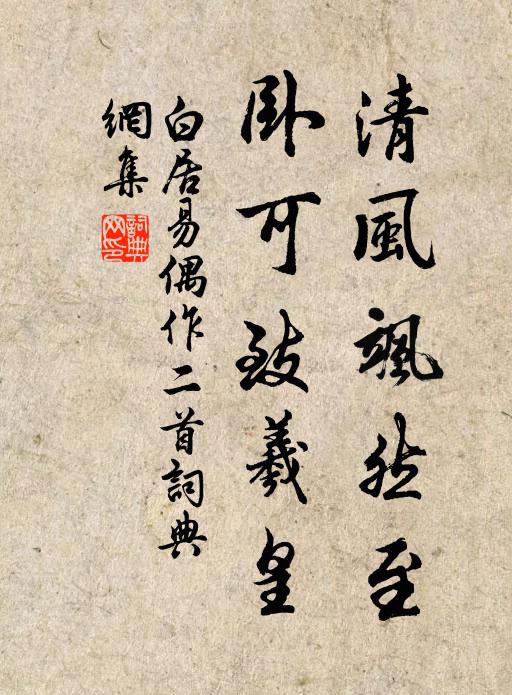 清風颯然至
卧可致羲皇
白居易偶作二首詞典
網集
詞典
网印